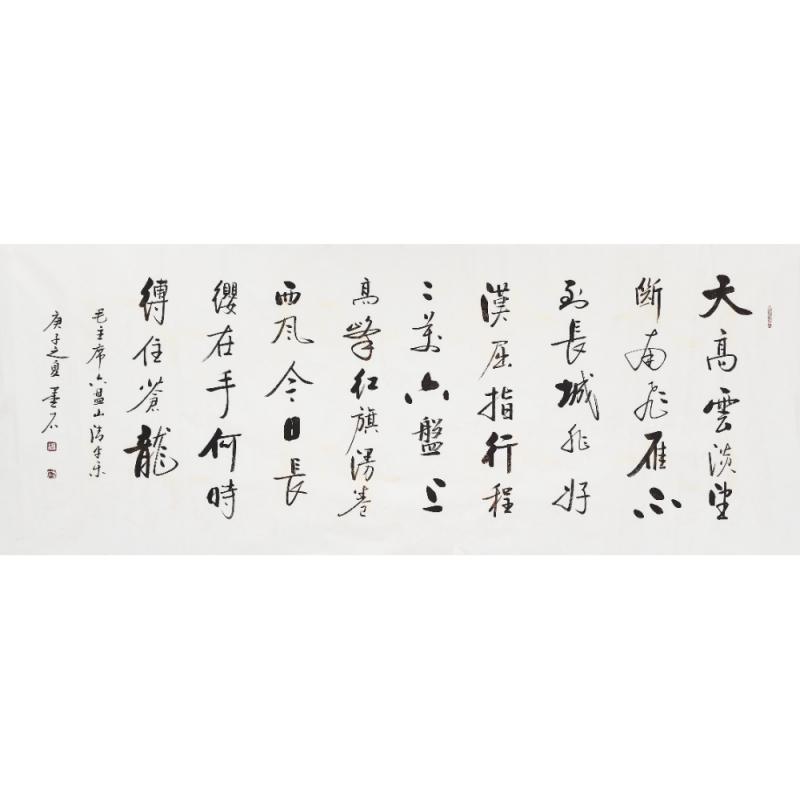 天高雲淡望
斷南飛雁不
到長城非好
漢屈指行程
二萬六盤上
高峰紅旗漫卷
西风今日長
纓在手何時
縛住蒼龍
毛主席六盘山清平乐
庚子之夏墨石